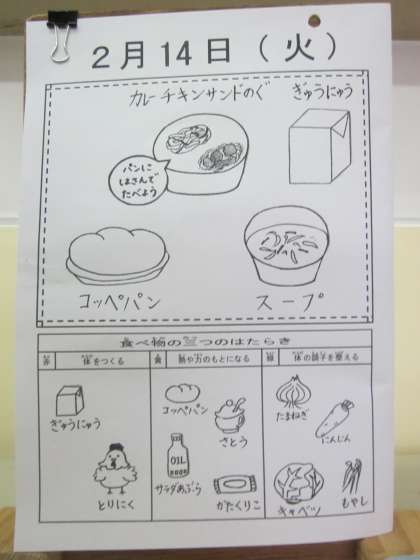 2月14日(火)
カレーチキンサンドのぐ
ぎゅうにゅう
パンに
はさんで
たべよう
コッペパン
スープ
食べ物の三つのはたらき
赤 体をつくる
黄 熱や力のもとになる
緑 体の調子を整える
ぎゅうにゅう
とりにく
コッペパン
さとう
OIL
サラダあぶら
かたくりこ
たまねぎ
にんじん
キャベツ
もやし